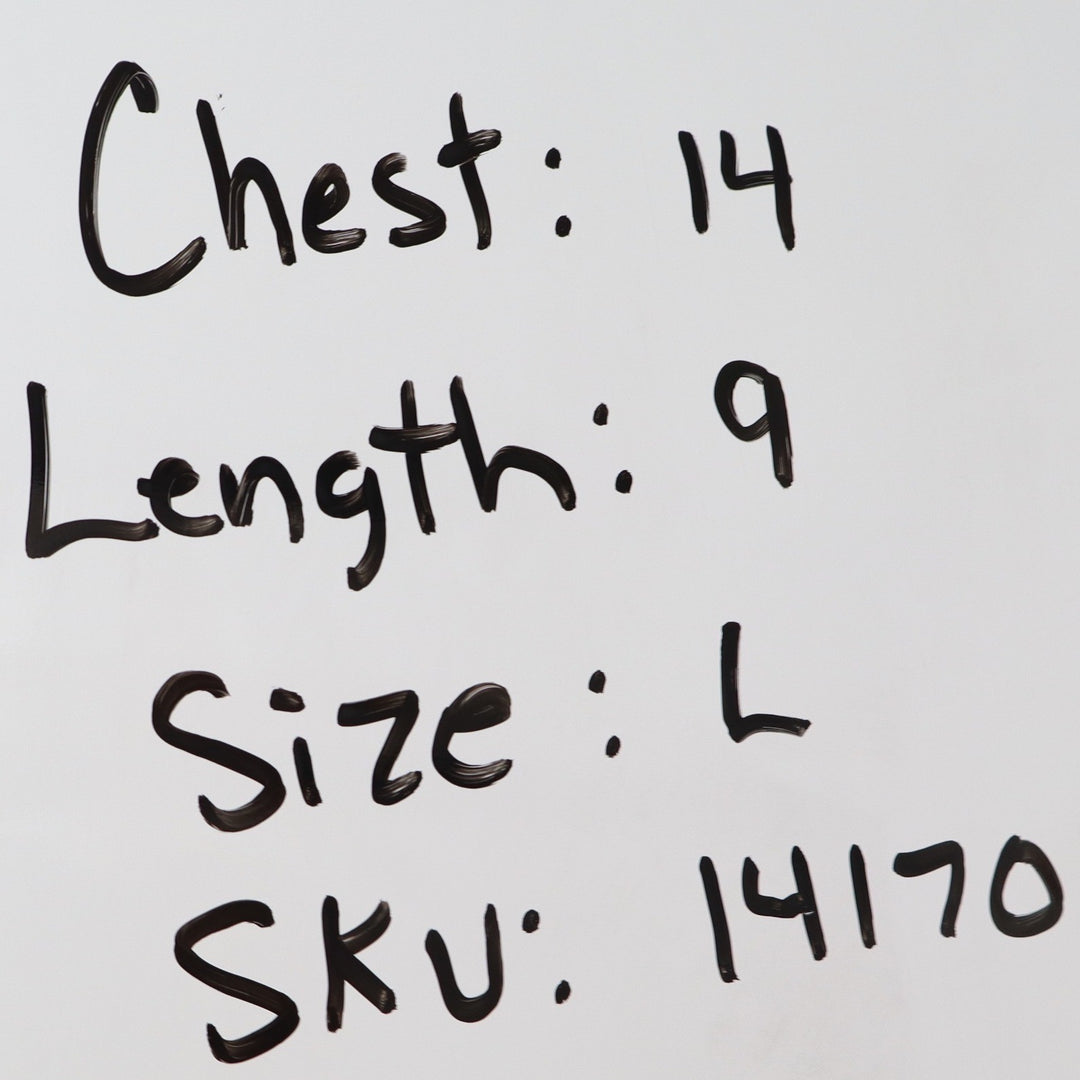 Chest: 14
Length: 9
Size: L
SKU: 14170